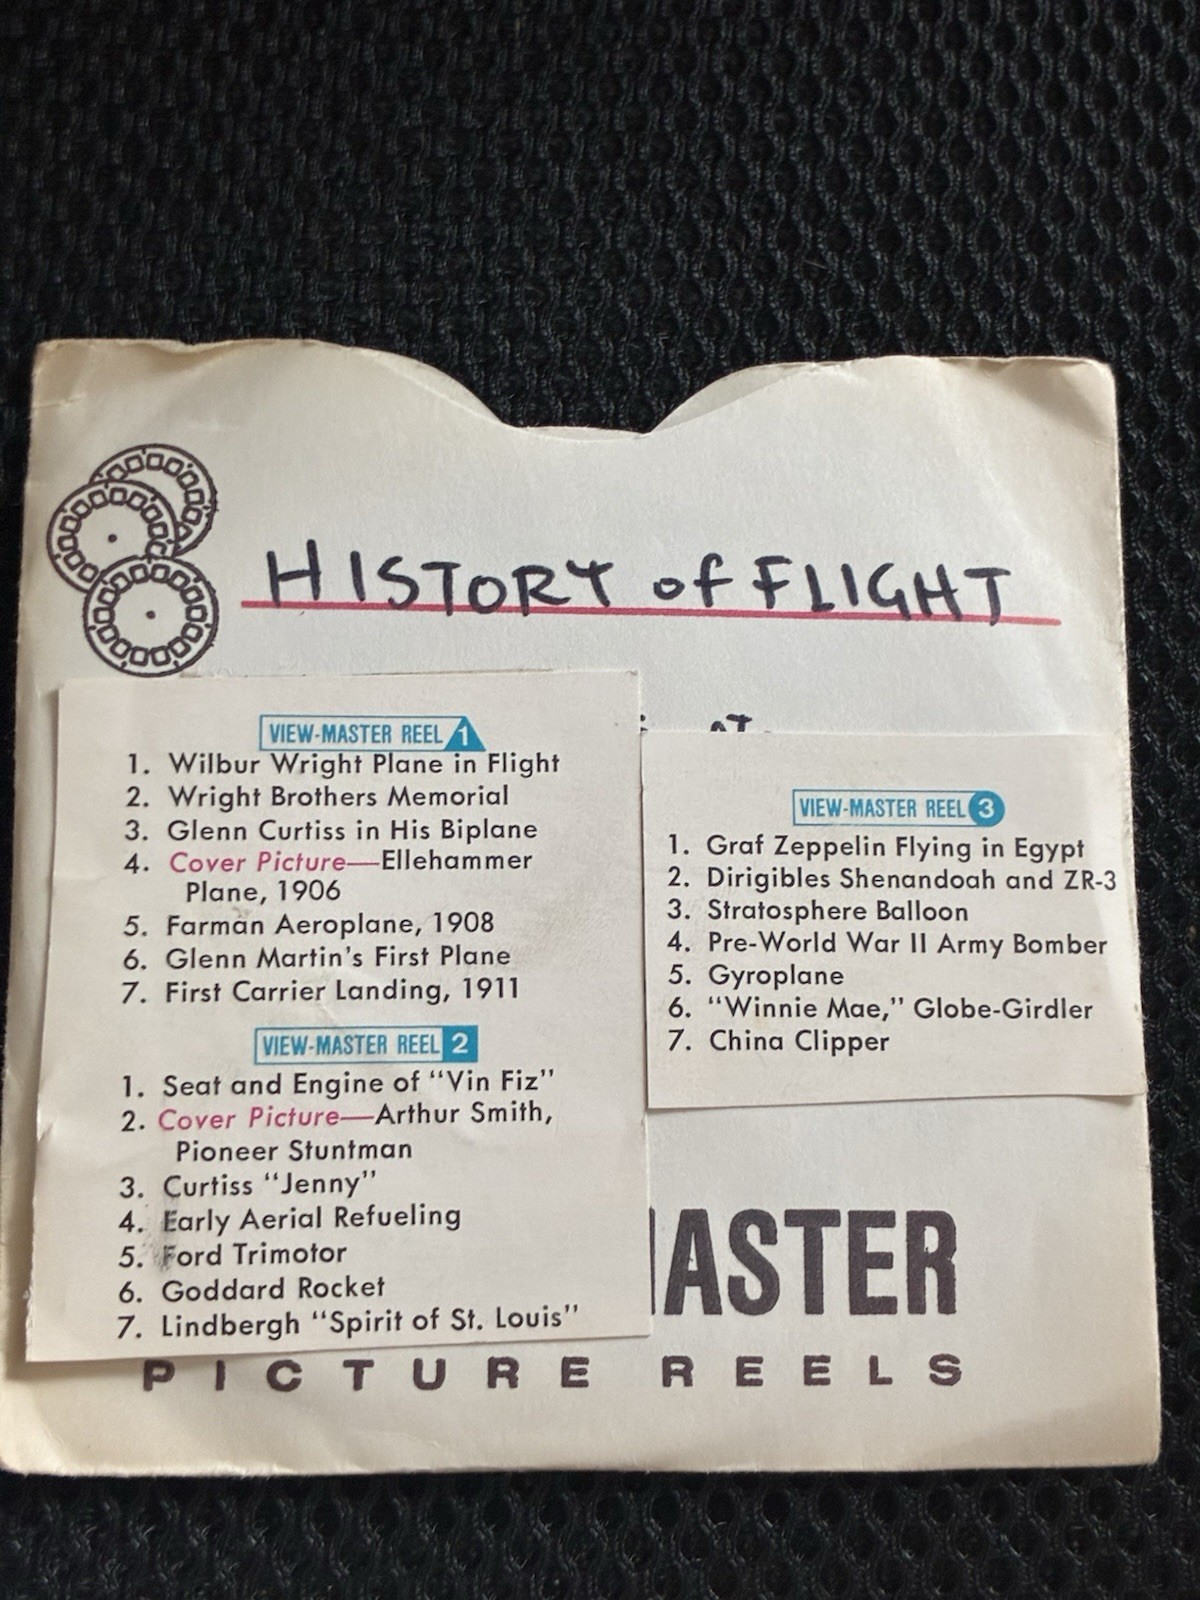 HISTORY of FLIGHT
VIEW-MASTER REEL 1
1. Wilbur Wright Plane in Flight
2. Wright Brothers Memorial
3. Glenn Curtiss in His Biplane
4. Cover Picture—Ellehammer
Plane, 1906
5. Farman Aeroplane, 1908
6. Glenn Martin's First Plane
7. First Carrier Landing, 1911
VIEW-MASTER REEL 2
1. Seat and Engine of "Vin Fiz"
2. Cover Picture—Arthur Smith,
Pioneer Stuntman
3. Curtiss "Jenny"
4. Early Aerial Refueling
5. Ford Trimotor
6. Goddard Rocket
7. Lindbergh "Spirit of St. Louis"
VIEW-MASTER REEL 3
1. Graf Zeppelin Flying in Egypt
2. Dirigibles Shenandoah and ZR-3
3. Stratosphere Balloon
4. Pre-World War II Army Bomber
5. Gyroplane
6. "Winnie Mae," Globe-Girdler
7. China Clipper
ASTER
PICTURE REELS